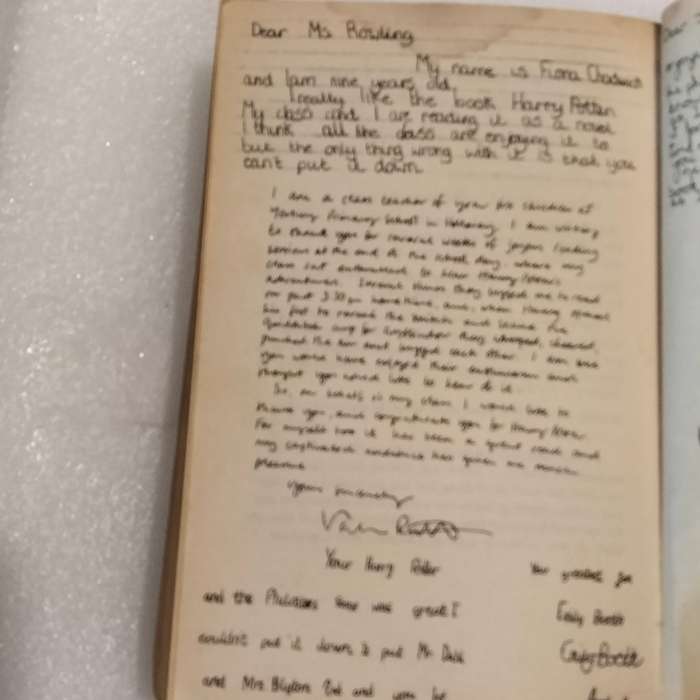 Dear Ms Rowling
My name is Fiona Chadwick
and I am nine years old.
I really like the book Harry Potter
My class and I are reading it as a novel
I think all the class are enjoying it to
but the only thing wrong with it is that you
can't put it down
I am a class teacher of year five children at
Primary School in I am writing
to thank you for several weeks of joyous reading
sessions at the end of the school day, where my
class sat enthralled to hear Harry Potter's
adventures. Several times they begged me to read
on past 3.30 pm home time, and, when Harry
his foot to the and the
Quidditch cup for Gryffindor they whooped, cheered,
punched the air and hugged each other. I am sure
you would have enjoyed their enthusiasm and
thought you would like to hear of it.
So, on behalf of my class I would like to
thank you, and congratulate you for Harry Potter.
For myself too it has been a great read and
my captivated audience has given me much
pleasure
Yours sincerely
Your Harry Potter
and the Philosophers Stone was great I
couldn't put it down. I put Mr Dahl
and Mrs Blyton and you
Your greatest fan
Emily Booth
Booth